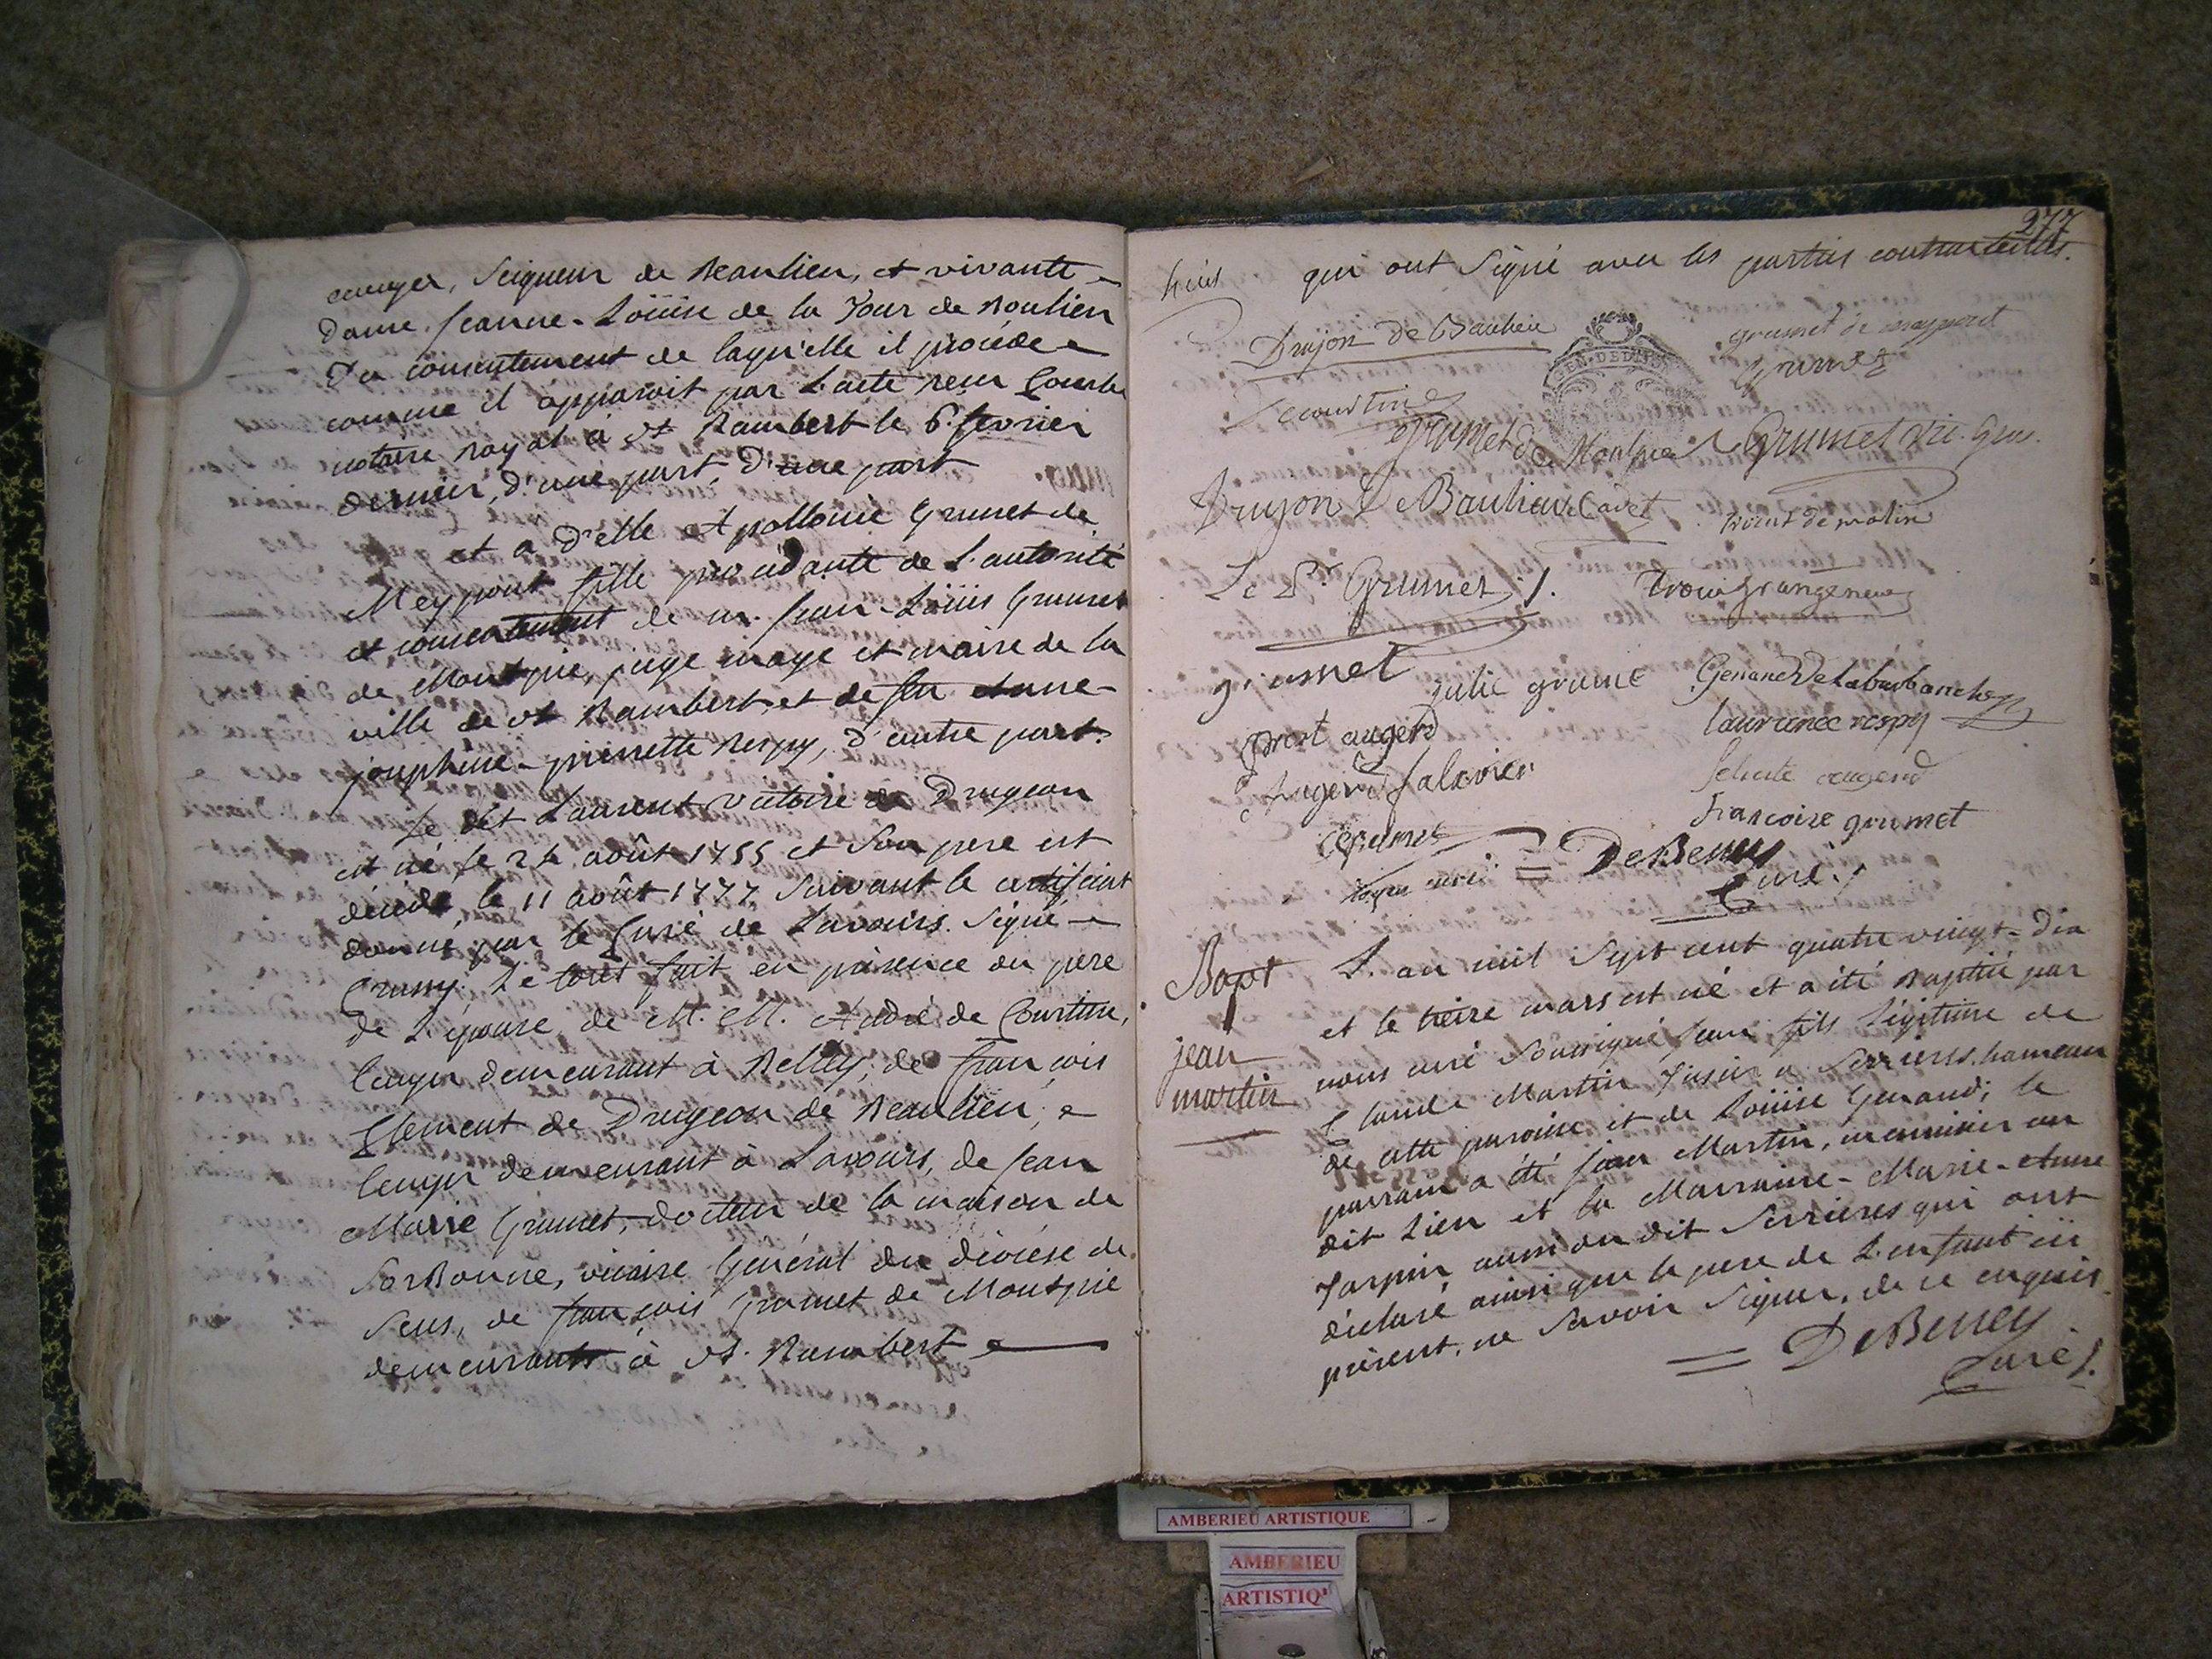 écuyer, Seigneur de Beaulieu, et vivante
dame Jeanne-Loüise de la Tour de Boulieu
du consentement de laquelle il procéde
comme il apparoit par l'acte reçu Courbe
notaire royal à St Rambert le 6. fevrier
dernier, d'une part, d'une part
et a d'elle Apollonie Grumet de
Meypont fille procédante de l'autorité
et consentement de m. Jean-Loüis Grumet
de Montpie, juge mage et maire de la
ville de St Rambert, et de feu Anne-
josephine-pierrette Respy, d'autre part.
Le dit Laurent victoire de Drugeon
est né le 24 août 1755 et son pere est
décédé le 11 août 1777 suivant le certificat
donné par le Curé de Lavours. Signé
Crussy. Le tout fait en présence du pere
de l'épouse, de M. M. André de Courtine,
Ecuyer demeurant à Belley; de françois
Clement de Drugeon de Beaulieu,
Ecuyer demeurant à Lavours, de Jean
Marie Grumet, docteur de la maison de
Sorbonne, vicaire Général du diocése de
Sens, de françois Grumet de Montpie
demeurants à St. Rambert
277
qui ont Signé avec les parties contractantes.
Drujon de Baulieu
grumet de meyport
grumet
Decourtine
GEN. DE DIJON
Grumet de Montpie
Grumet Vic. Gen.
Drujon De Baulieu Cadet
de molin
Le Dr. Grumet
grumet
julie grumet
Genand Delabarbanche
augerd
laurence respy
Augerd
felicité augerd
Grumet
francoise grumet
curé = DeBeney
Curé
Bapt
jean
martin
L'an mil Sept cent quatre vingt-dix
et le treize mars est né et a été Baptisé par
nous curé Soussigné Jean fils Légitime de
Claude Martin à Serrieres hameau
de cette paroisse et de Loüise Genaud; le
parrain a été Jean Martin, menuisier au
dit Lieu et la Marraine-Marie-Anne
Jarpin aussi du dit Serrieres qui ont
déclaré ainsi que le pere de L'enfant ici
présent, ne Savoir Signer, de ce enquis.
= DeBeney
Curé
AMBERIEU ARTISTIQUE
AMBERIEU
ARTISTIQ'